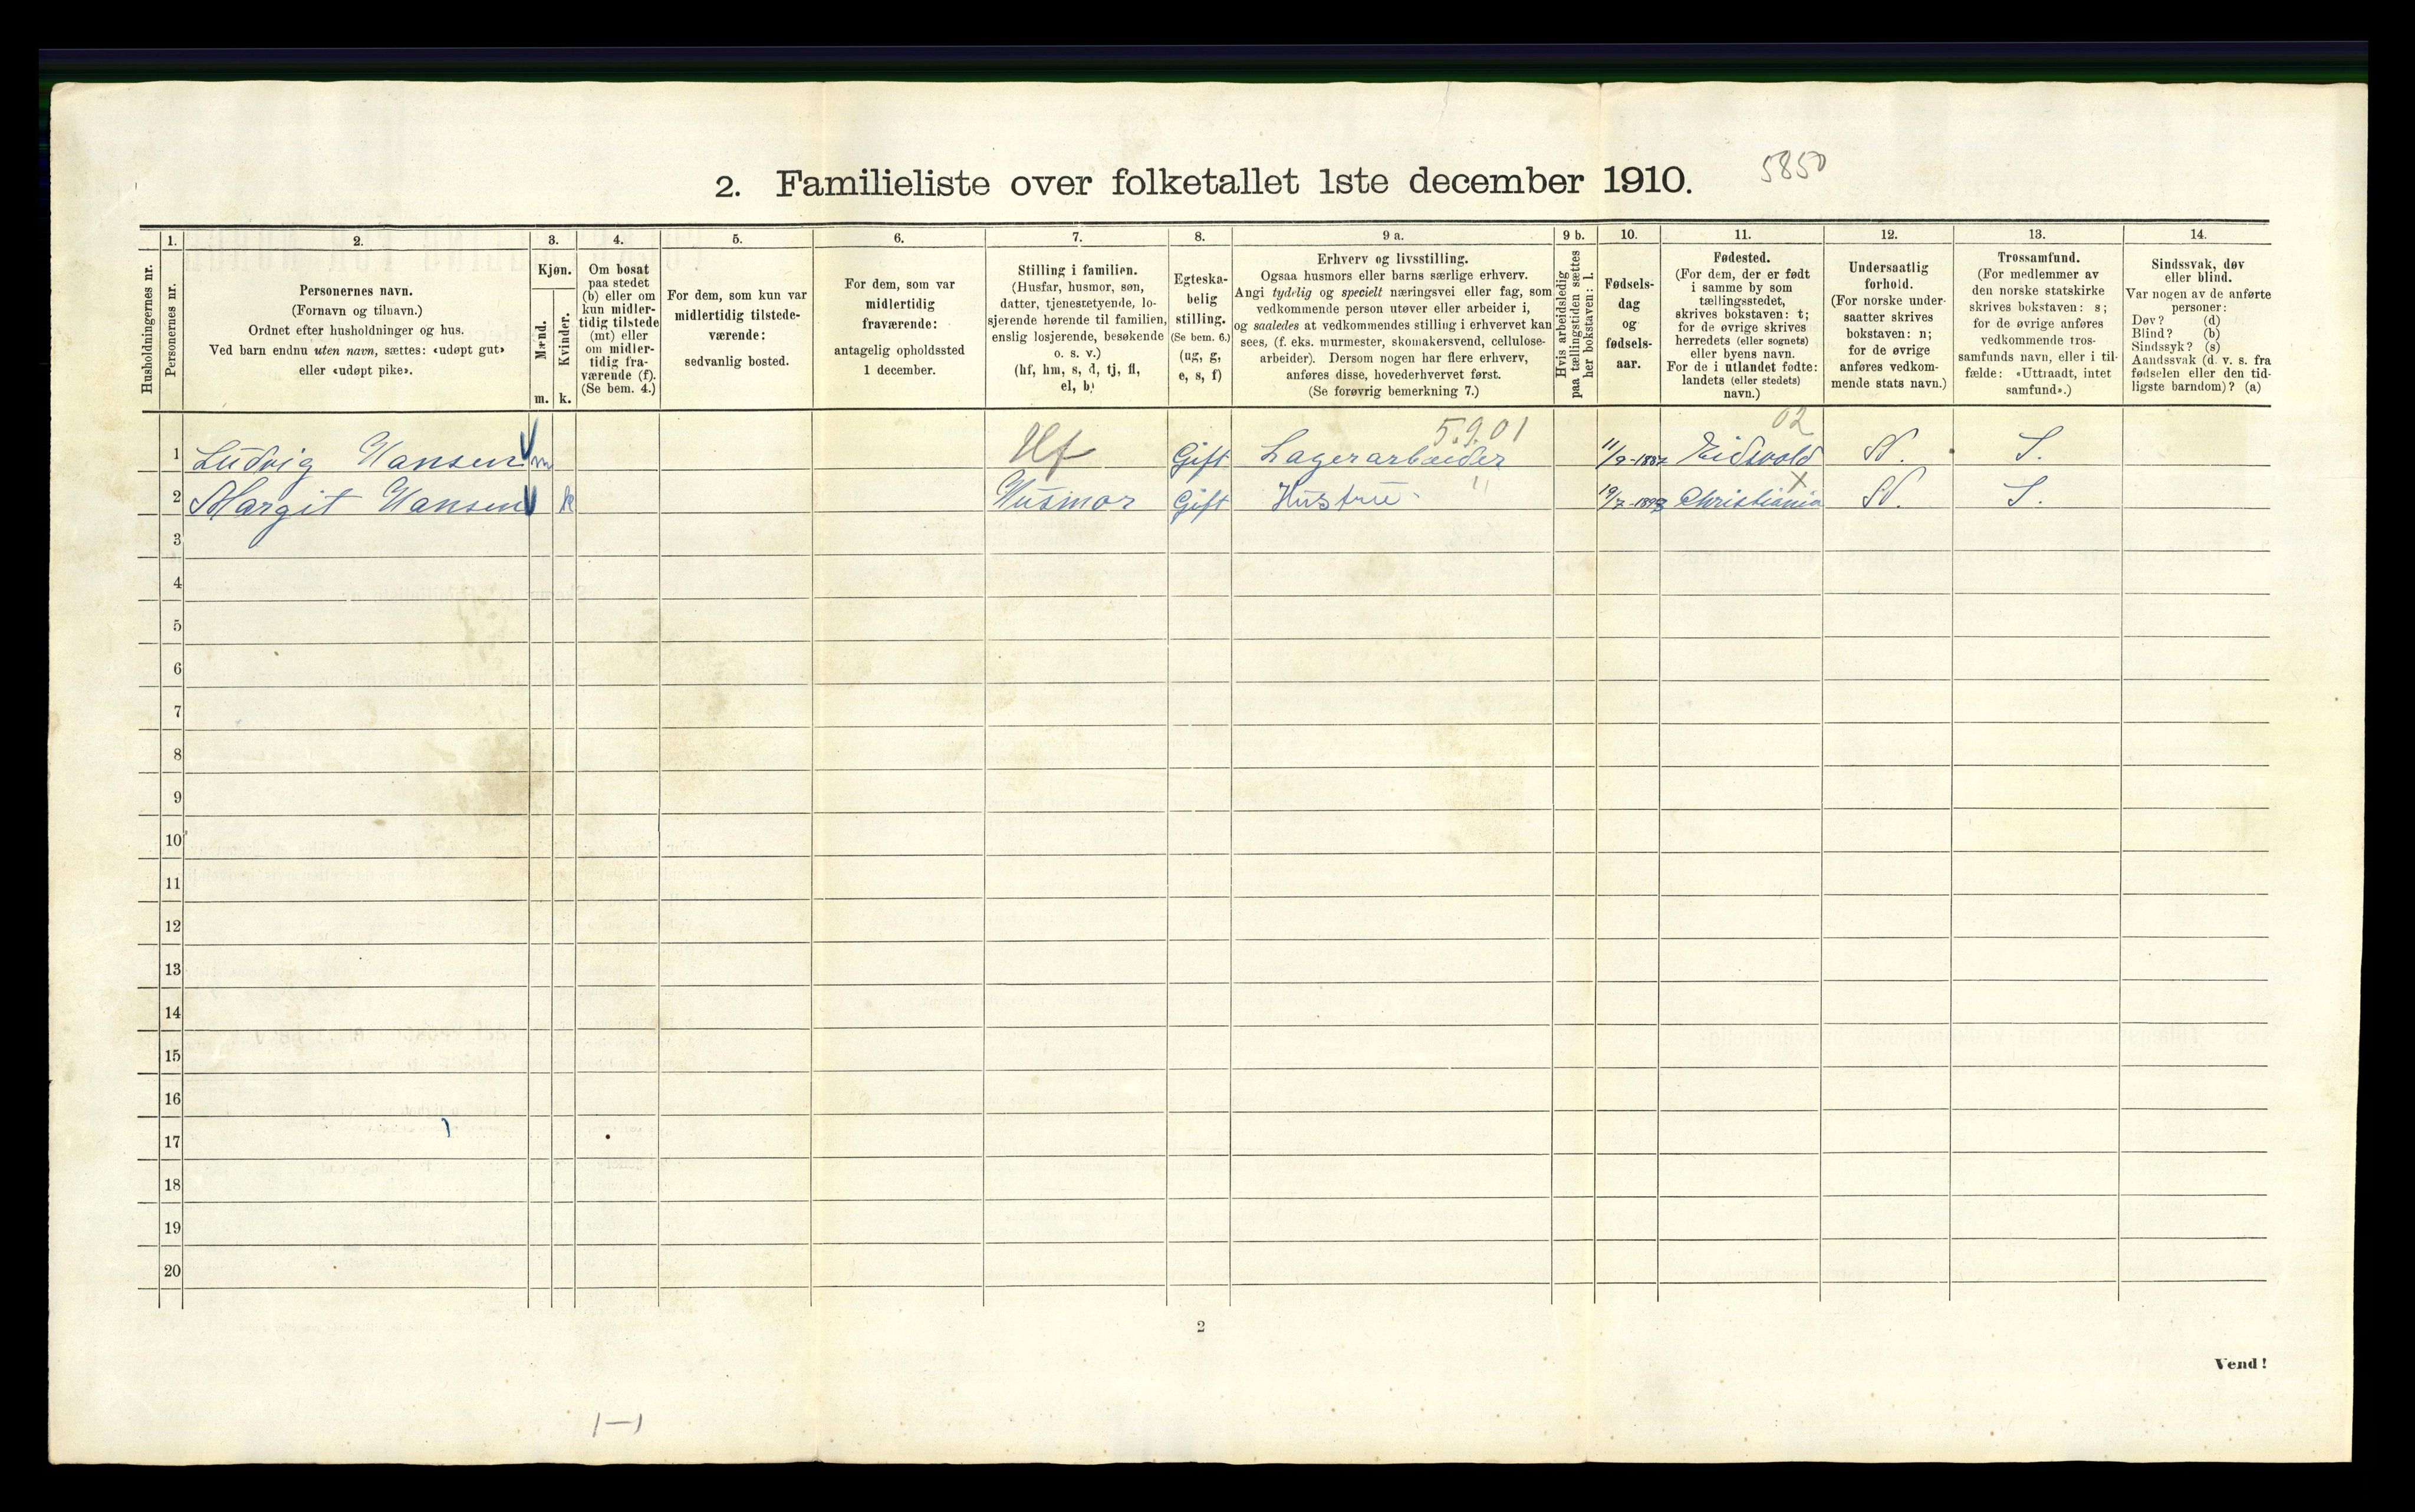 2. Familieliste over folketallet 1ste december 1910.
5850
Husholdningernes nr.
1.
Personernes nr.
2.
Personernes navn.
(Fornavn og tilnavn.)
Ordnet efter husholdninger og hus.
Ved barn endnu uten navn, sættes: «udøpt gut»
eller «udøpt pike».
3.
Kjøn.
Mænd.
Kvinder.
m. k.
4.
Om bosat
paa stedet
(b) eller om
kun midler-
tidig tilstede
(mt) eller
om midler-
tidig fra-
værende (f).
(Se bem. 4.)
5.
For dem, som kun var
midlertidig tilstede-
værende:
sedvanlig bosted.
6.
For dem, som var
midlertidig
fraværende:
antagelig opholdssted
1 december.
7.
Stilling i familien.
(Husfar, husmor, søn,
datter, tjenestetyende, lo-
sjerende hørende til familien,
enslig losjerende, besøkende
o. s. v.)
(hf, hm, s, d, tj, fl,
el, b)
8.
Egteska-
belig
stilling.
(Se bem. 6.)
(ug, g,
e, s, f)
9 a.
Erhverv og livsstilling.
Ogsaa husmors eller barns særlige erhverv.
Angi tydelig og specielt næringsvei eller fag, som
vedkommende person utøver eller arbeider i,
og saaledes at vedkommendes stilling i erhvervet kan
sees, (f. eks. murmester, skomakersvend, cellulose-
arbeider). Dersom nogen har flere erhverv,
anføres disse, hovederhvervet først.
(Se forøvrig bemerkning 7.)
9 b.
Hvis arbeidsledig
paa tællingstiden sættes
her bokstaven: l.
10.
Fødsels-
dag
og
fødsels-
aar.
11.
Fødested.
(For dem, der er født
i samme by som
tællingsstedet,
skrives bokstaven: t;
for de øvrige skrives
herredets (eller sognets)
eller byens navn.
For de i utlandet fødte:
landets (eller stedets)
navn.)
12.
Undersaatlig
forhold.
(For norske under-
saatter skrives
bokstaven: n;
for de øvrige
anføres vedkom-
mende stats navn.)
13.
Trossamfund.
(For medlemmer av
den norske statskirke
skrives bokstaven: s;
for de øvrige anføres
vedkommende tros-
samfunds navn, eller i til-
fælde: «Uttraadt, intet
samfund».)
14.
Sindssvak, døv
eller blind.
Var nogen av de anførte
personer:
Døv? (d)
Blind? (b)
Sindssyk? (s)
Aandssvak (d. v. s. fra
fødselen eller den tid-
ligste barndom)? (a)
5.9.01 02
1 Ludvig Hansen m Hf Gift Lagerarbeider 11/9-1887 Eidsvold N. S.
2 Margit Hansen k Husmor Gift Hustru " Christiania x N. S.
3
4
5
6
7
8
9
10
11
12
13
14
15
16
17
18
19
20
2
Vend!
1-1